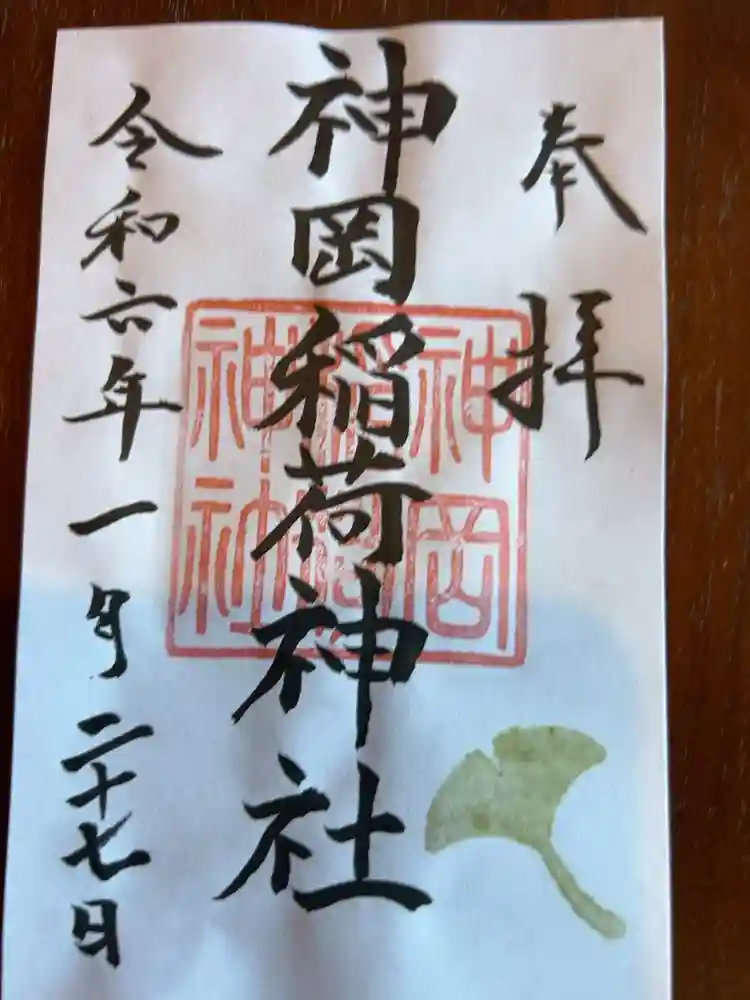 奉拝
神岡稲荷神社
神岡
稲荷
神社
令和六年一月二十七日